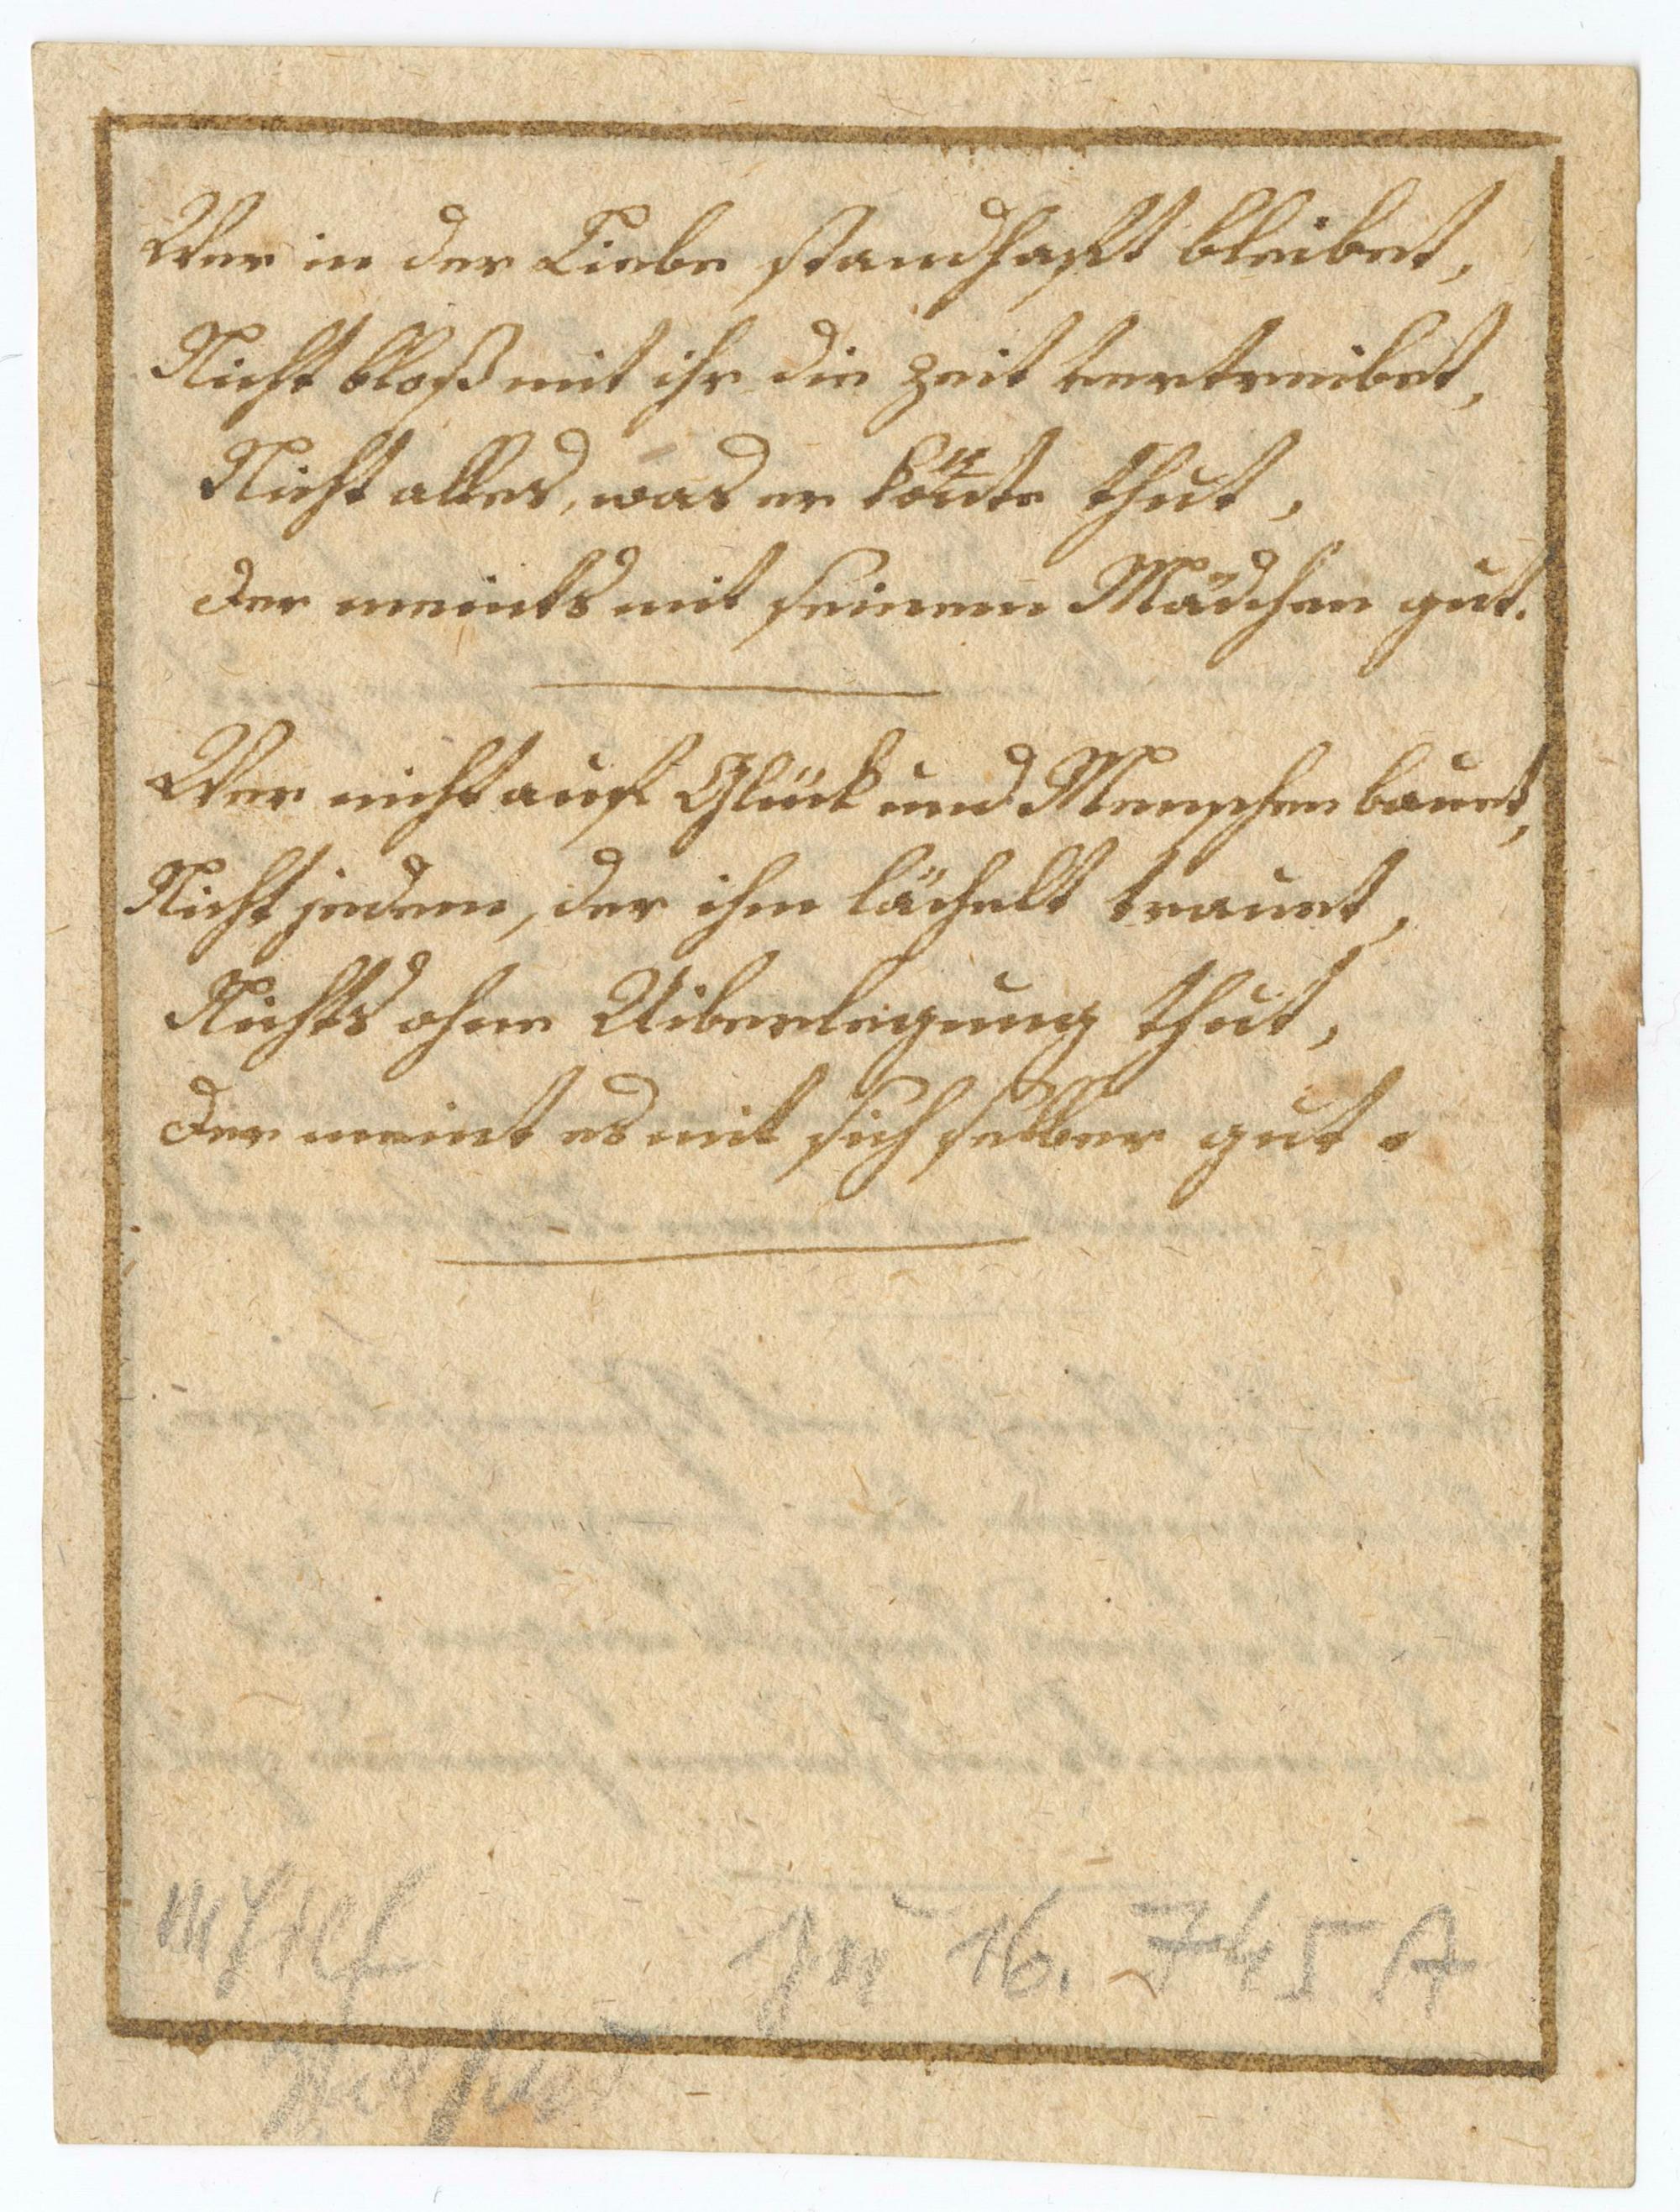 Wer in der Liebe standhaft bleibet,
Nicht bloß mit ihr die Zeit vertreibet,
Nicht alles, was er könte thut,
der meints mit seinem Mädchen gut.
Wer nicht auf Glück und Menschen bauet,
Nicht jedem, der ihm lächelt trauet,
Nichts ohne Uiberlegung thut,
der meint es mit sich selber gut.
16. 745 A